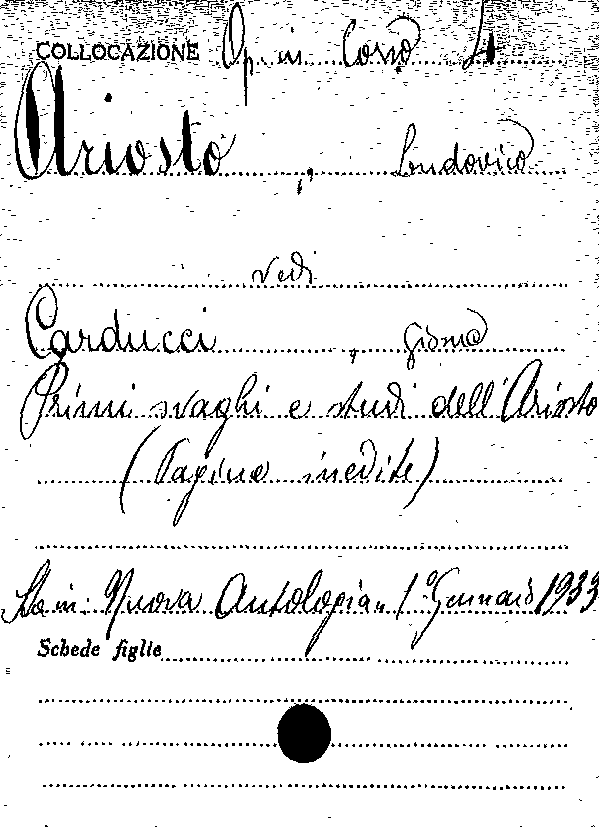 COLLOCAZIONE Op. in Corso 4
Ariosto, Ludovico
vedi
Carducci, Giosuè
Primi svaghi e studi dell'Ariosto
(Pagine inedite)
Sta in: Nuova Antologia, 1° Gennaio 1933
Schede figlie